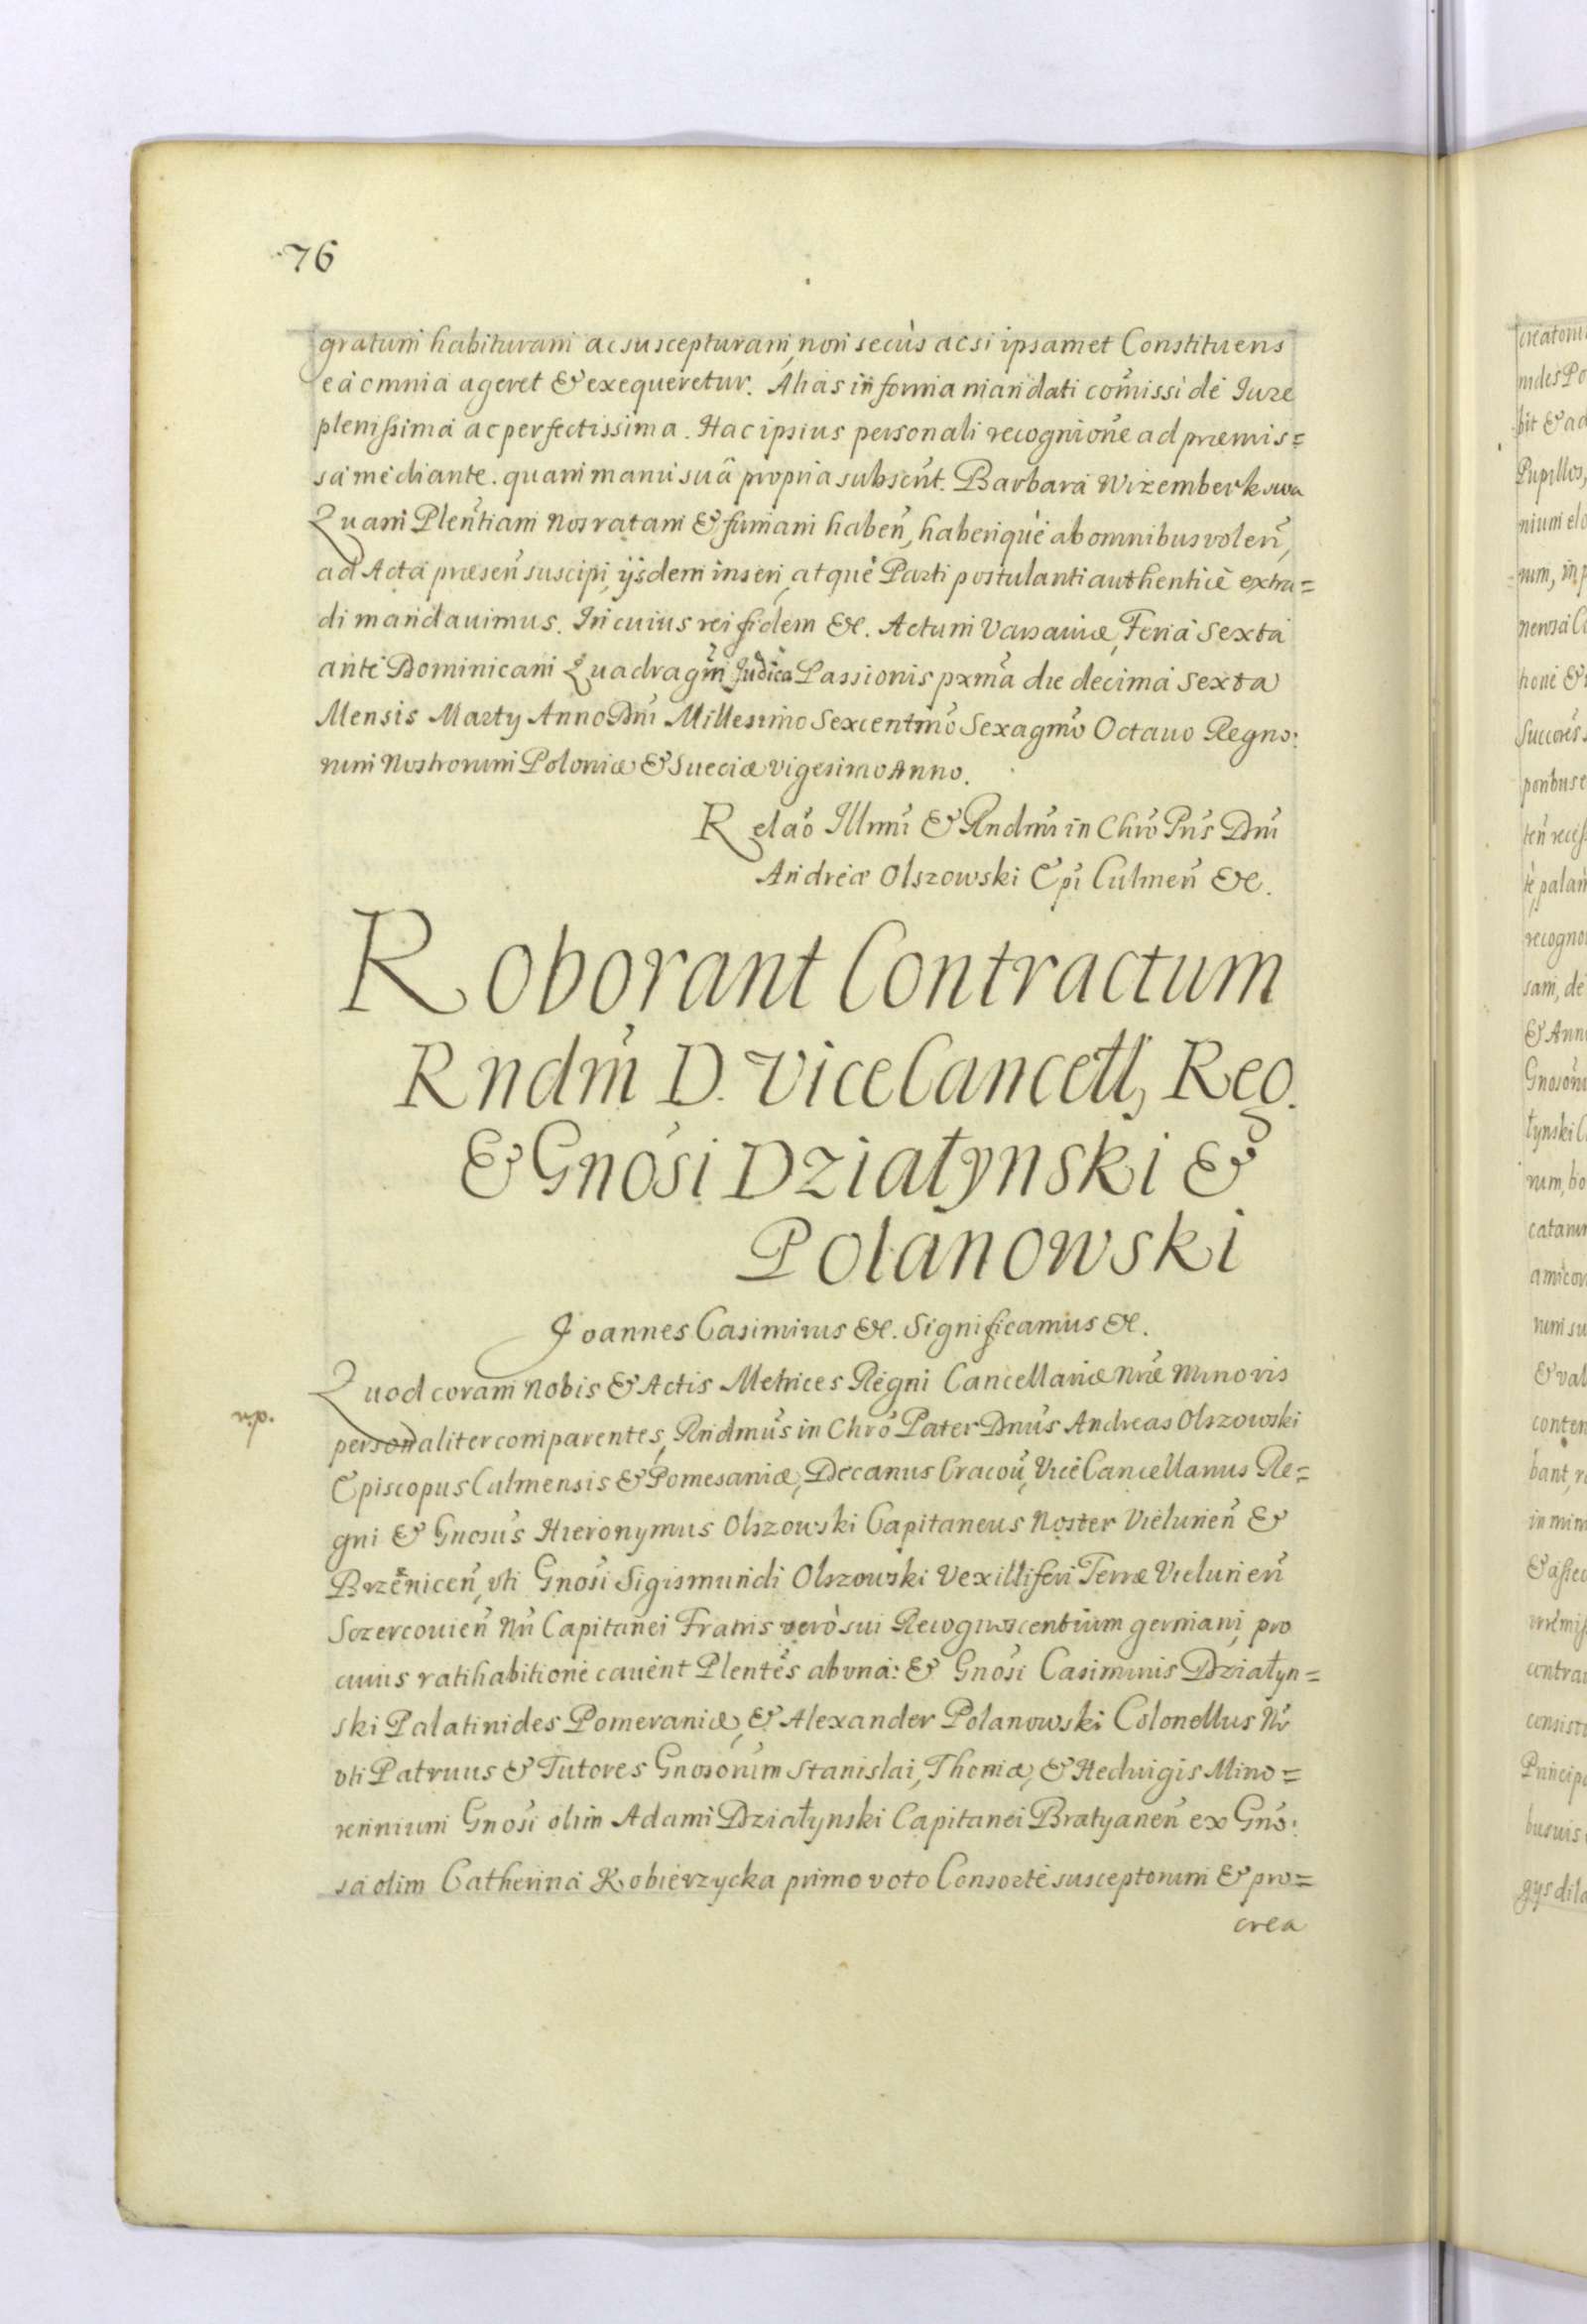 76
gratum habituram ac suscepturam, non secùs ac si ipsamet Constituens
ea omnia ageret & exequeretur. Alias in forma mandati com̃issi de Iure
plenissima ac perfectissima. Hac ipsius personali recognione ad præmis=
sa mediante. quam manu suâ propria subscrıt. Barbara Wizemberkowa
Quam Pleñtiam Nos ratam & firmam habeñ, haberique ab omnibus voleñ,
ad Acta præseñ suscipi, ijsdem inseri, atque Parti postulanti authenticè extra=
di mandauimus. In cuius rei fidem &c. Actum Varsauiæ, Feria Sexta
ante Dominicam Quadragm̃ Judica Passionis pxm̃a die decima Sexta
Mensis Marty Anno Dni Millesimo Sexcentm̃o Sexagm̃o Octauo Regno:
rum Nostrorum Poloniæ & Sueciæ vigesimo Anno.
Relao Illmi & Rndmi in Chro Pris Dni
Andreæ Olszowski Epi Culmeñ &c.
Roborant Contractum
Rndm̃ D. ViceCancell, Reg.
& Gnosi Działynski &
Polanowski
Joannes Casimirus &c. Significamus &c.
Quod coram Nobis & Actis Metrices Regni Cancellariæ Nræ Minoris
personaliter comparentes, Rndmus in Chro Pater Dnus Andreas Olszowski
Episcopus Culmensis & Pomesaniæ, Decanus Cracou, ViceCancellarius Re=
gni & Gnosus Hieronymus Olszowski Capitaneus Noster Vieluneñ &
Brzeniceñ, vti Gnosi Sigismundi Olszowski Vexilliferi Terræ Vieluneñ
Sczercouieñ Nri Capitanei Fratris verò sui Recognoscentium germani, pro
cuius ratihabitione cauent Plentes ab vna: & Gnosi Casimirus Działyn=
ski Palatinides Pomeraniæ, & Alexander Polanowski Colonellus Nr
vti Patruus & Tutores Gnosorum Stanislai, Thomæ, & Hedwigis Mino=
rennium Gnosi olim Adami Działynski Capitanei Bratyaneñ ex Gno:
sa olim Catherina Kobierzycka primo voto Consorte susceptorum & pro=
crea